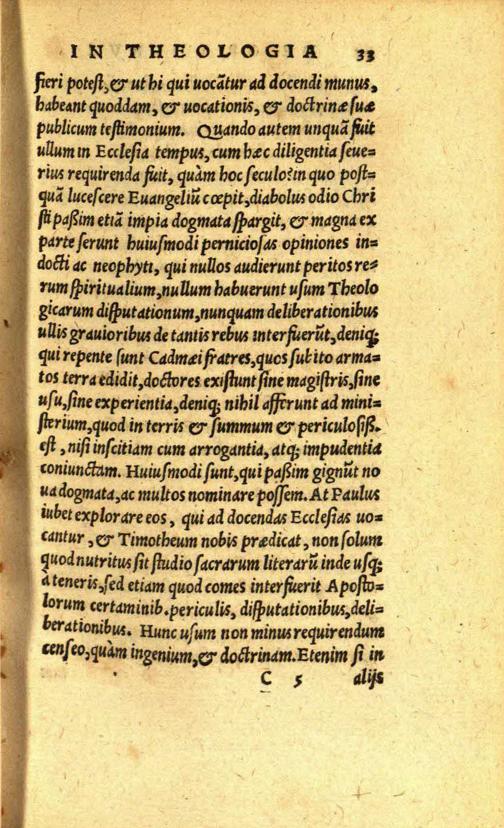 IN THEOLOGIA 33
fieri potest, & ut hi qui uocãtur ad docendi munus,
habeant quoddam, & uocationis, & doctrinæ suæ
publicum testimonium. Quando autem unquã fuit
ullum in Ecclesia tempus, cum hæc diligentia seue=
rius requirenda fuit, quàm hoc seculo? in quo post=
quã lucescere Euangeliũ cœpit, diabolus odio Chri
sti paßim etiã impia dogmata spargit, & magna ex
parte serunt huiusmodi perniciosas opiniones in=
docti ac neophyti, qui nullos audierunt peritos re=
rum spiritualium, nullum habuerunt usum Theolo
gicarum disputationum, nunquam deliberationibus
ullis grauioribus de tantis rebus interfuerũt, deniq;
qui repente sunt Cadmæi fratres, quos subito arma=
tos terra edidit, doctores existunt sine magistris, sine
usu, sine experientia, deniq; nihil afferunt ad mini=
sterium, quod in terris & summum & periculosiß.
est, nisi inscitiam cum arrogantia, atq; impudentia
coniunctam. Huiusmodi sunt, qui paßim gignũt no
ua dogmata, ac multos nominare possem. At Paulus
iubet explorare eos, qui ad docendas Ecclesias uo=
cantur, & Timotheum nobis prædicat, non solum
quod nutritus sit studio sacrarum literarũ inde usq;
à teneris, sed etiam quod comes interfuerit Aposto=
lorum certaminib. periculis, disputationibus, deli=
berationibus. Hunc usum non minus requirendum
censeo, quàm ingenium, & doctrinam. Etenim si in
C 5 alijs